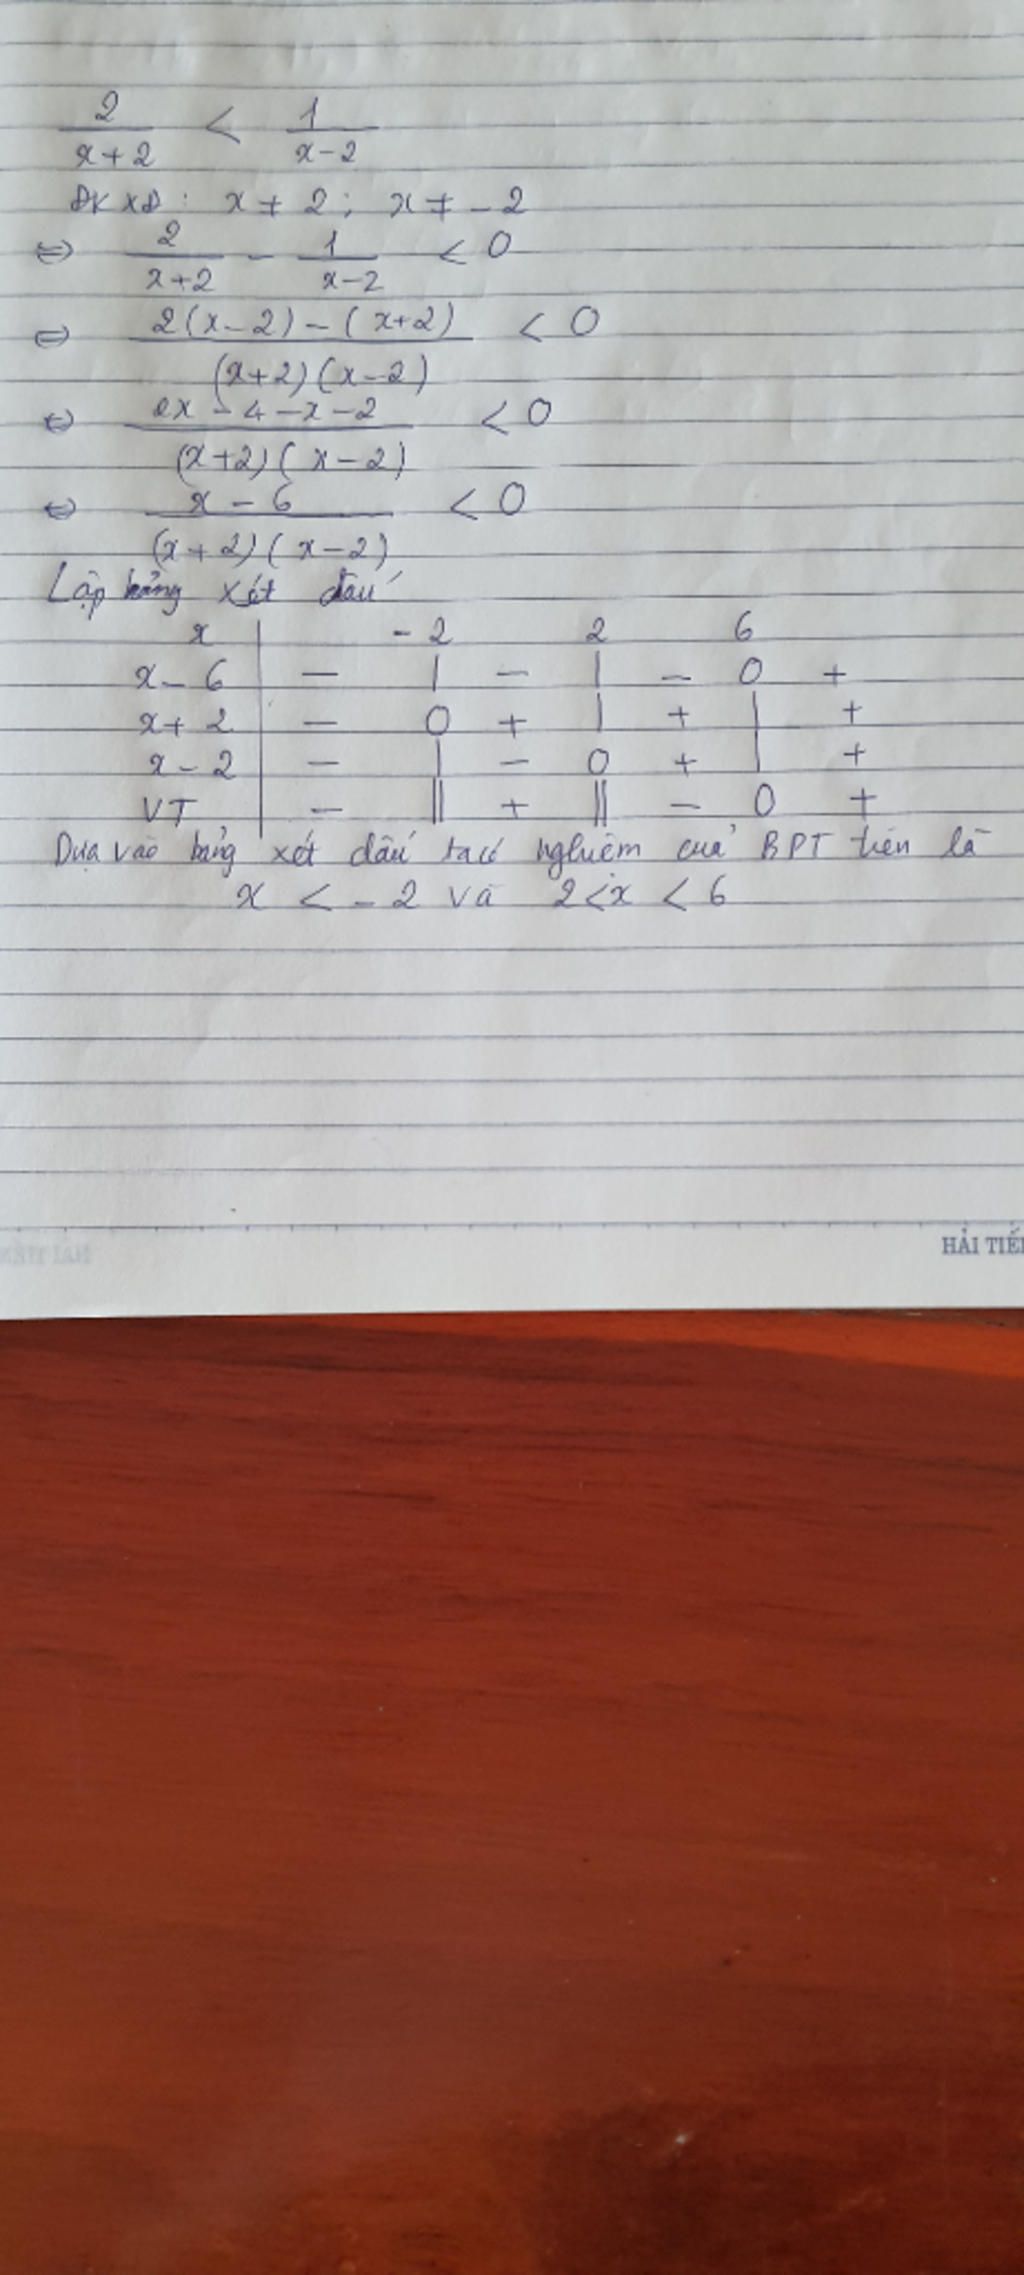 2/(x+2) < 1/(x-2)
ĐKXĐ: x ≠ 2; x ≠ -2
⇔ 2/(x+2) - 1/(x-2) < 0
⇔ (2(x-2) - (x+2))/((x+2)(x-2)) < 0
⇔ (2x - 4 - x - 2)/((x+2)(x-2)) < 0
⇔ (x - 6)/((x+2)(x-2)) < 0
Lập bảng xét dấu
x | -2 2 6
x - 6 | - | - | - 0 +
x + 2 | - 0 + | + | +
x - 2 | - | - 0 + | +
VT | - || + || - 0 +
Dựa vào bảng xét dấu ta có nghiệm của BPT trên là
x < -2 và 2 < x < 6
HẢI TIẾ